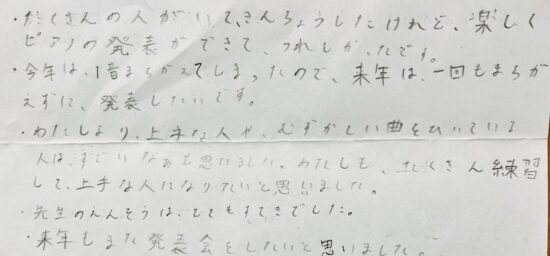 ・たくさんの人がいて、きんちょうしたけれど、楽しく
ピアノの発表ができて、うれしかったです。
・今年は、1音まちがえてしまったので、来年は、一回もまちが
えずに、発表したいです。
・わたしより、上手な人や、むずかしい曲をひいている
人は、すごいなぁと思いました。わたしも、たくさん練習
して、上手な人になりたいと思いました。
・先生のえんそうは、とてもすてきでした。
・来年もまた発表会をしたいと思いました。